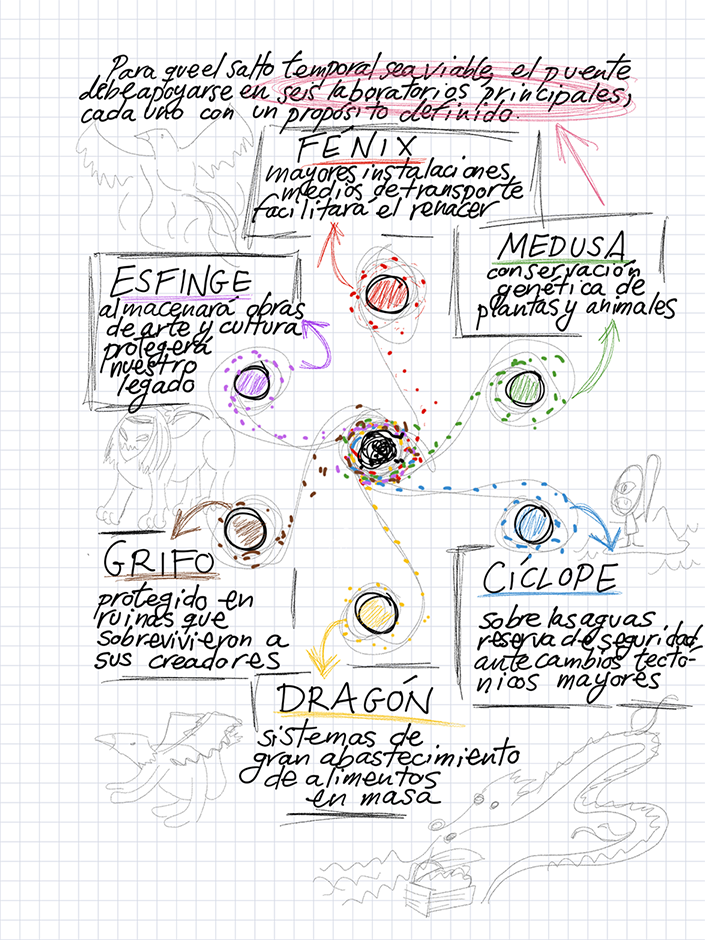 Para que el salto temporal sea viable, el puente
debe apoyarse en seis laboratorios principales,
cada uno con un propósito definido.
FÉNIX
mayores instalaciones,
medios de transporte
facilitará el renacer
MEDUSA
conservación
genética de
plantas y animales
ESFINGE
almacenará obras
de arte y cultura
protegerá
nuestro
legado
GRIFO
protegido en
ruinas que
sobrevivieron a
sus creadores
CÍCLOPE
sobre las aguas
reserva de seguridad
ante cambios tectó-
nicos mayores
DRAGÓN
sistemas de
gran abastecimiento
de alimentos
en masa